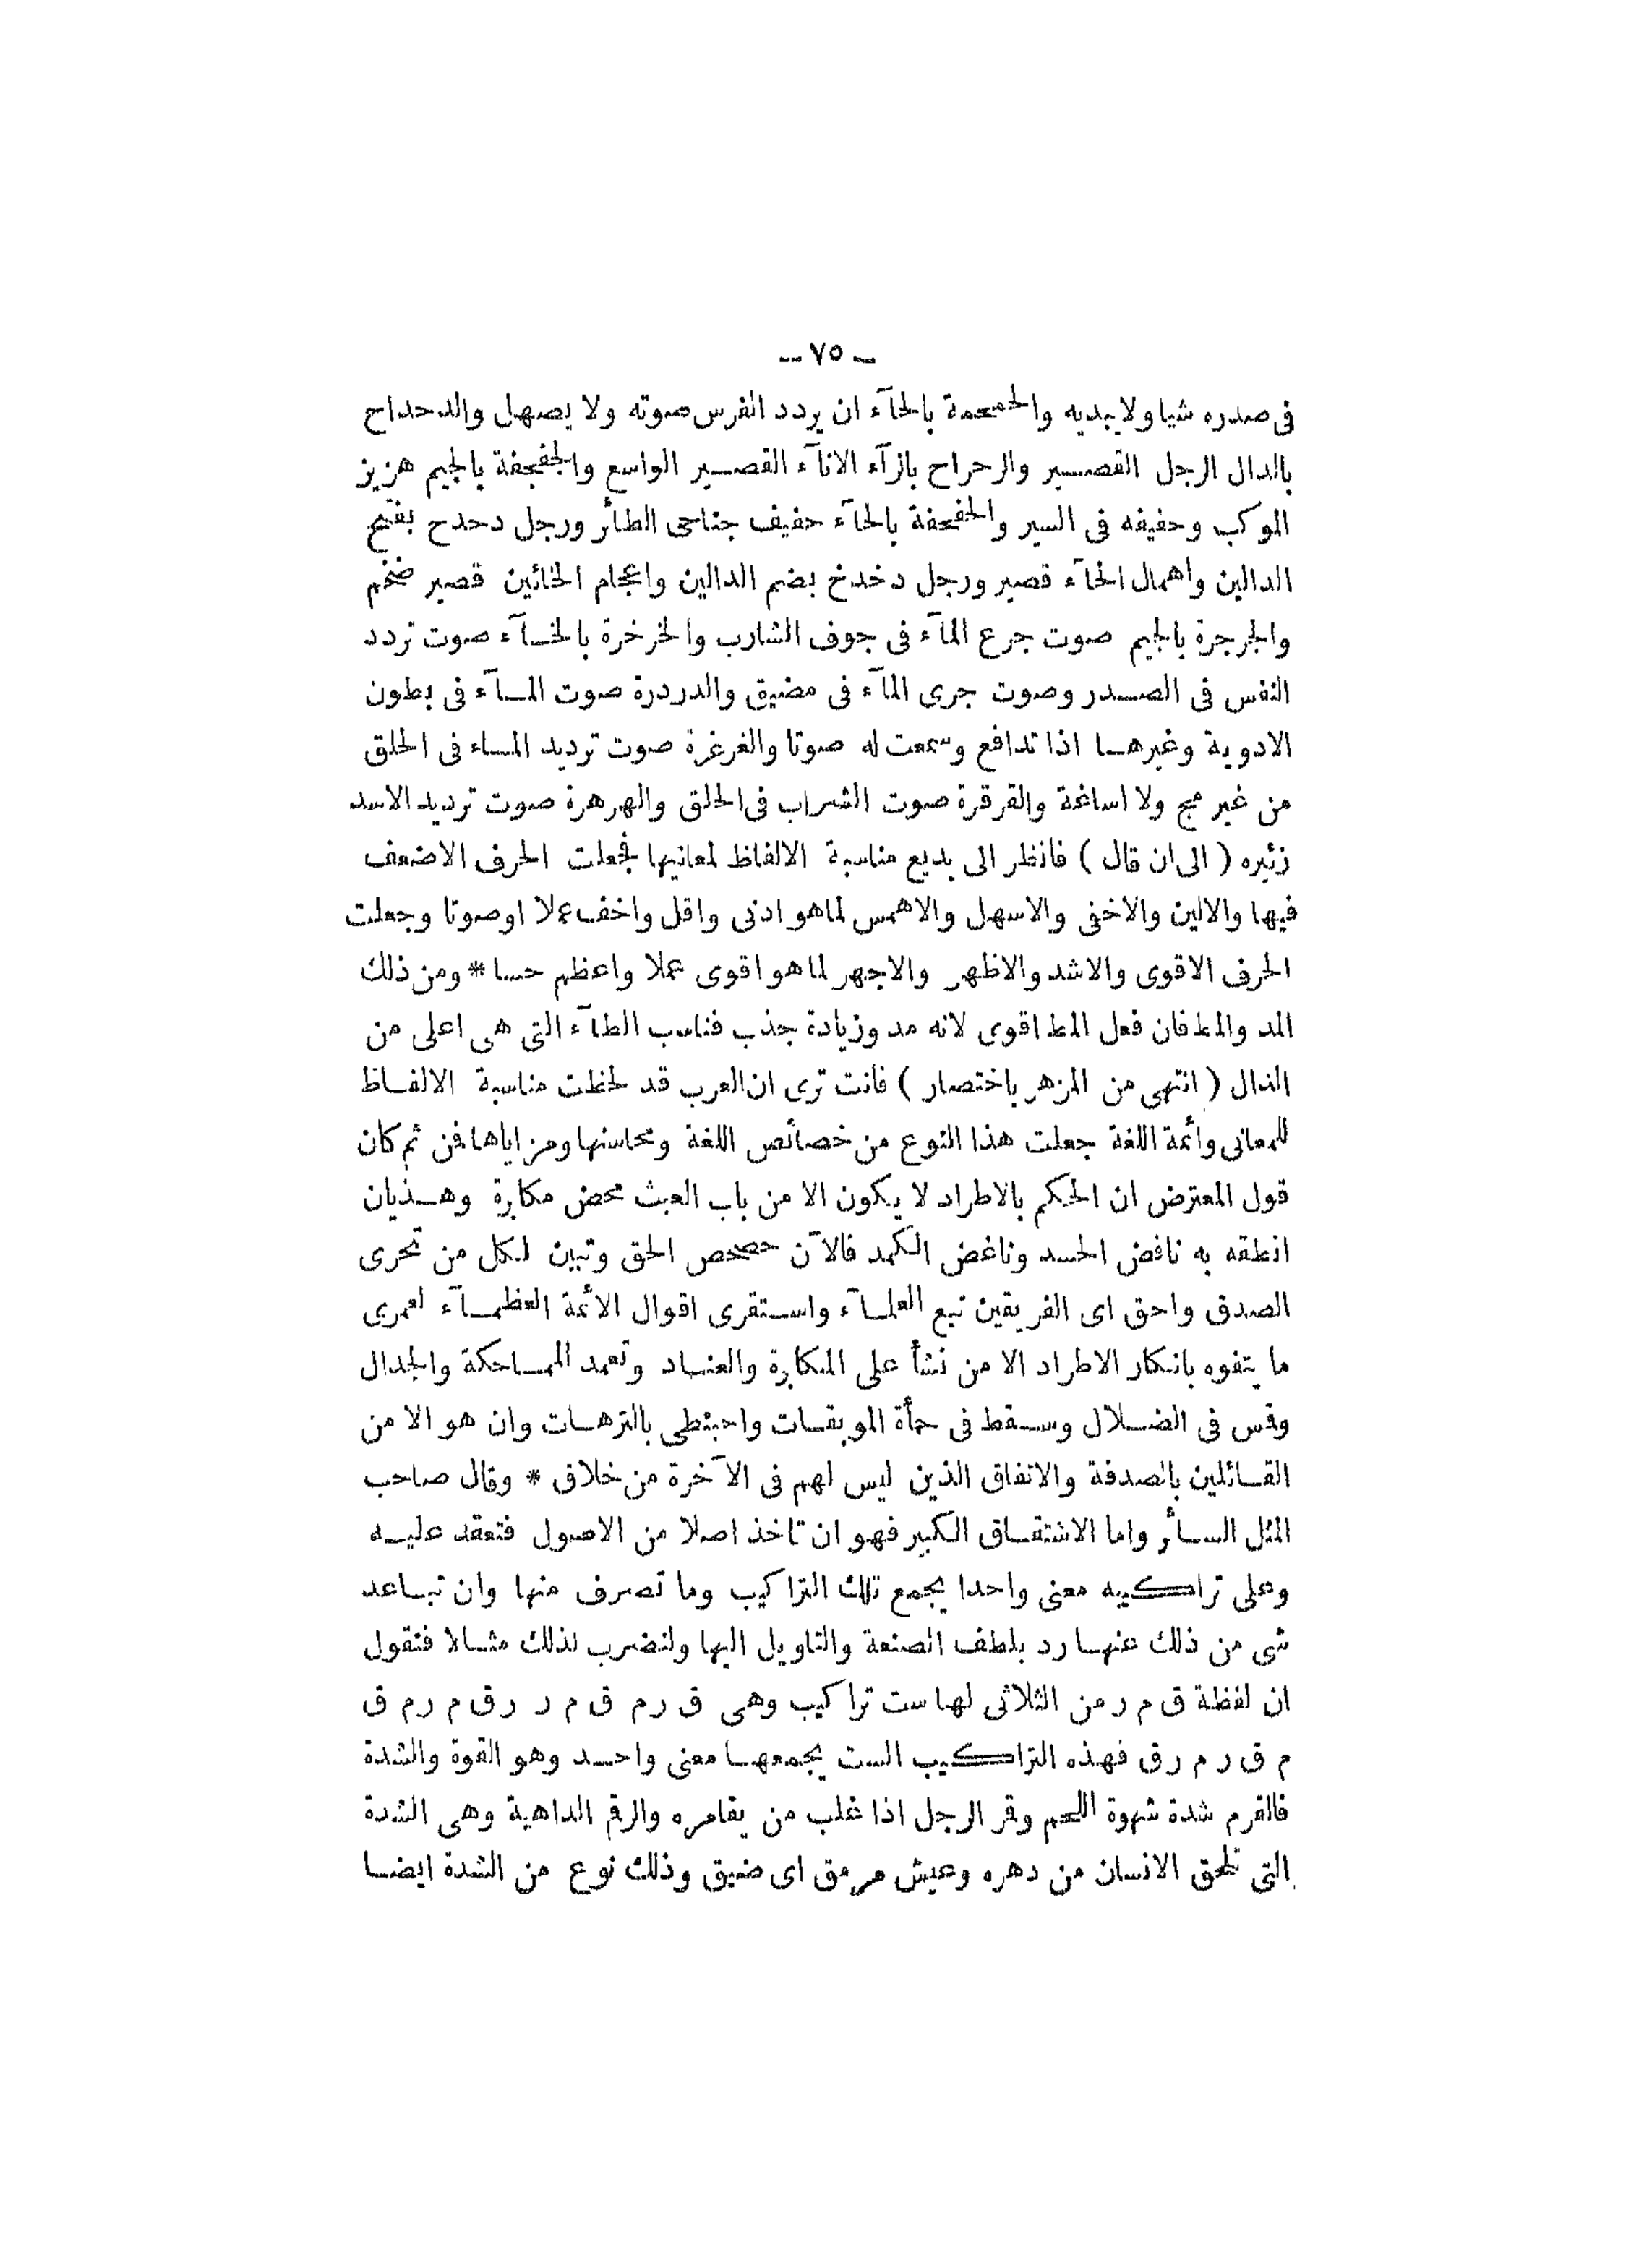 ـ ٧٥ ـ
فى صدره شيا ولا يبديه والحمحمة بالحآء ان يردد الفرس صوته ولا يصهل والدحداح
بالدال الرجل القصير والرحراح بالرآء الانآء القصير الواسع والجفجفة بالجيم هزيز
الموكب وحفيفه فى السير والحفحفة بالحآء حفيف جناحى الطائر ورجل دحدح بفتح
الدالين واهمال الحآء قصير ورجل دخدخ بضم الدالين واعجام الخائين قصير ضخم
والجرجرة بالجيم صوت جرع المآء فى جوف الشارب والخرخرة بالخآء صوت تردد
النفس فى الصدر وصوت جرى المآء فى مضيق والدردرة صوت المآء فى بطون
الادوية وغيرها اذا تدافع وسمعت له صوتا والغرغرة صوت ترديد الماء فى الحلق
من غير مج ولا اساغة والقرقرة صوت الشراب فى الحلق والهرهرة صوت ترديد الاسد
زئيره ( الى ان قال ) فانظر الى بديع مناسبة الالفاظ لمعانيها فجعلت الحرف الاضعف
فيها والالين والاخفى والاسهل والاهمس لما هو ادنى واقل واخف عملا او صوتا وجعلت
الحرف الاقوى والاشد والاظهر والاجهر لما هو اقوى عملا واعظم حسا * ومن ذلك
المد والمط فان فعل المط اقوى لانه مد وزيادة جذب فناسب الطآء التى هى اعلى من
الدال ( انتهى من المزهر باختصار ) فانت ترى ان العرب قد لحظت مناسبة الالفاظ
للمعانى وائمة اللغة جعلت هذا النوع من خصائص اللغة ومحاسنها ومزاياها فن ثم كان
قول المعترض ان الحكم بالاطراد لا يكون الا من باب العبث محض مكابرة وهذيان
انطقه به نافض الحسد وناغض الكمد فالآن حصحص الحق وتبين لكل من تحرى
الصدق واحق اى الفريقين تبع العلمآء واستقرى اقوال الائمة العظمآء لعمرى
ما يتفوه بانكار الاطراد الا من نشأ على المكابرة والعناد وتعمد المماحكة والجدال
وقس فى الضلال وسقط فى حمأة الموبقات واحبنطى بالترهات وان هو الا من
القائلين بالصدفة والاتفاق الذين ليس لهم فى الآخرة من خلاق * وقال صاحب
المثل السائر واما الاشتقاق الكبير فهو ان تاخذ اصلا من الاصول فتعقد عليه
وعلى تراكيبه معنى واحدا يجمع تلك التراكيب وما تصرف منها وان تباعد
شى من ذلك عنها رد بلطف الصنعة والتاويل اليها ولنضرب لذلك مثالا فنقول
ان لفظة ق م ر من الثلاثى لها ست تراكيب وهى ق ر م ق م ر ر ق م ر م ق
م ق ر م ر ق فهذه التراكيب الست يجمعها معنى واحد وهو القوة والشدة
فالقرم شدة شهوة اللحم وقر الرجل اذا غلب من يقامره والرقم الداهية وهى الشدة
التى تلحق الانسان من دهره وعيش مرمق اى ضيق وذلك نوع من الشدة ايضا